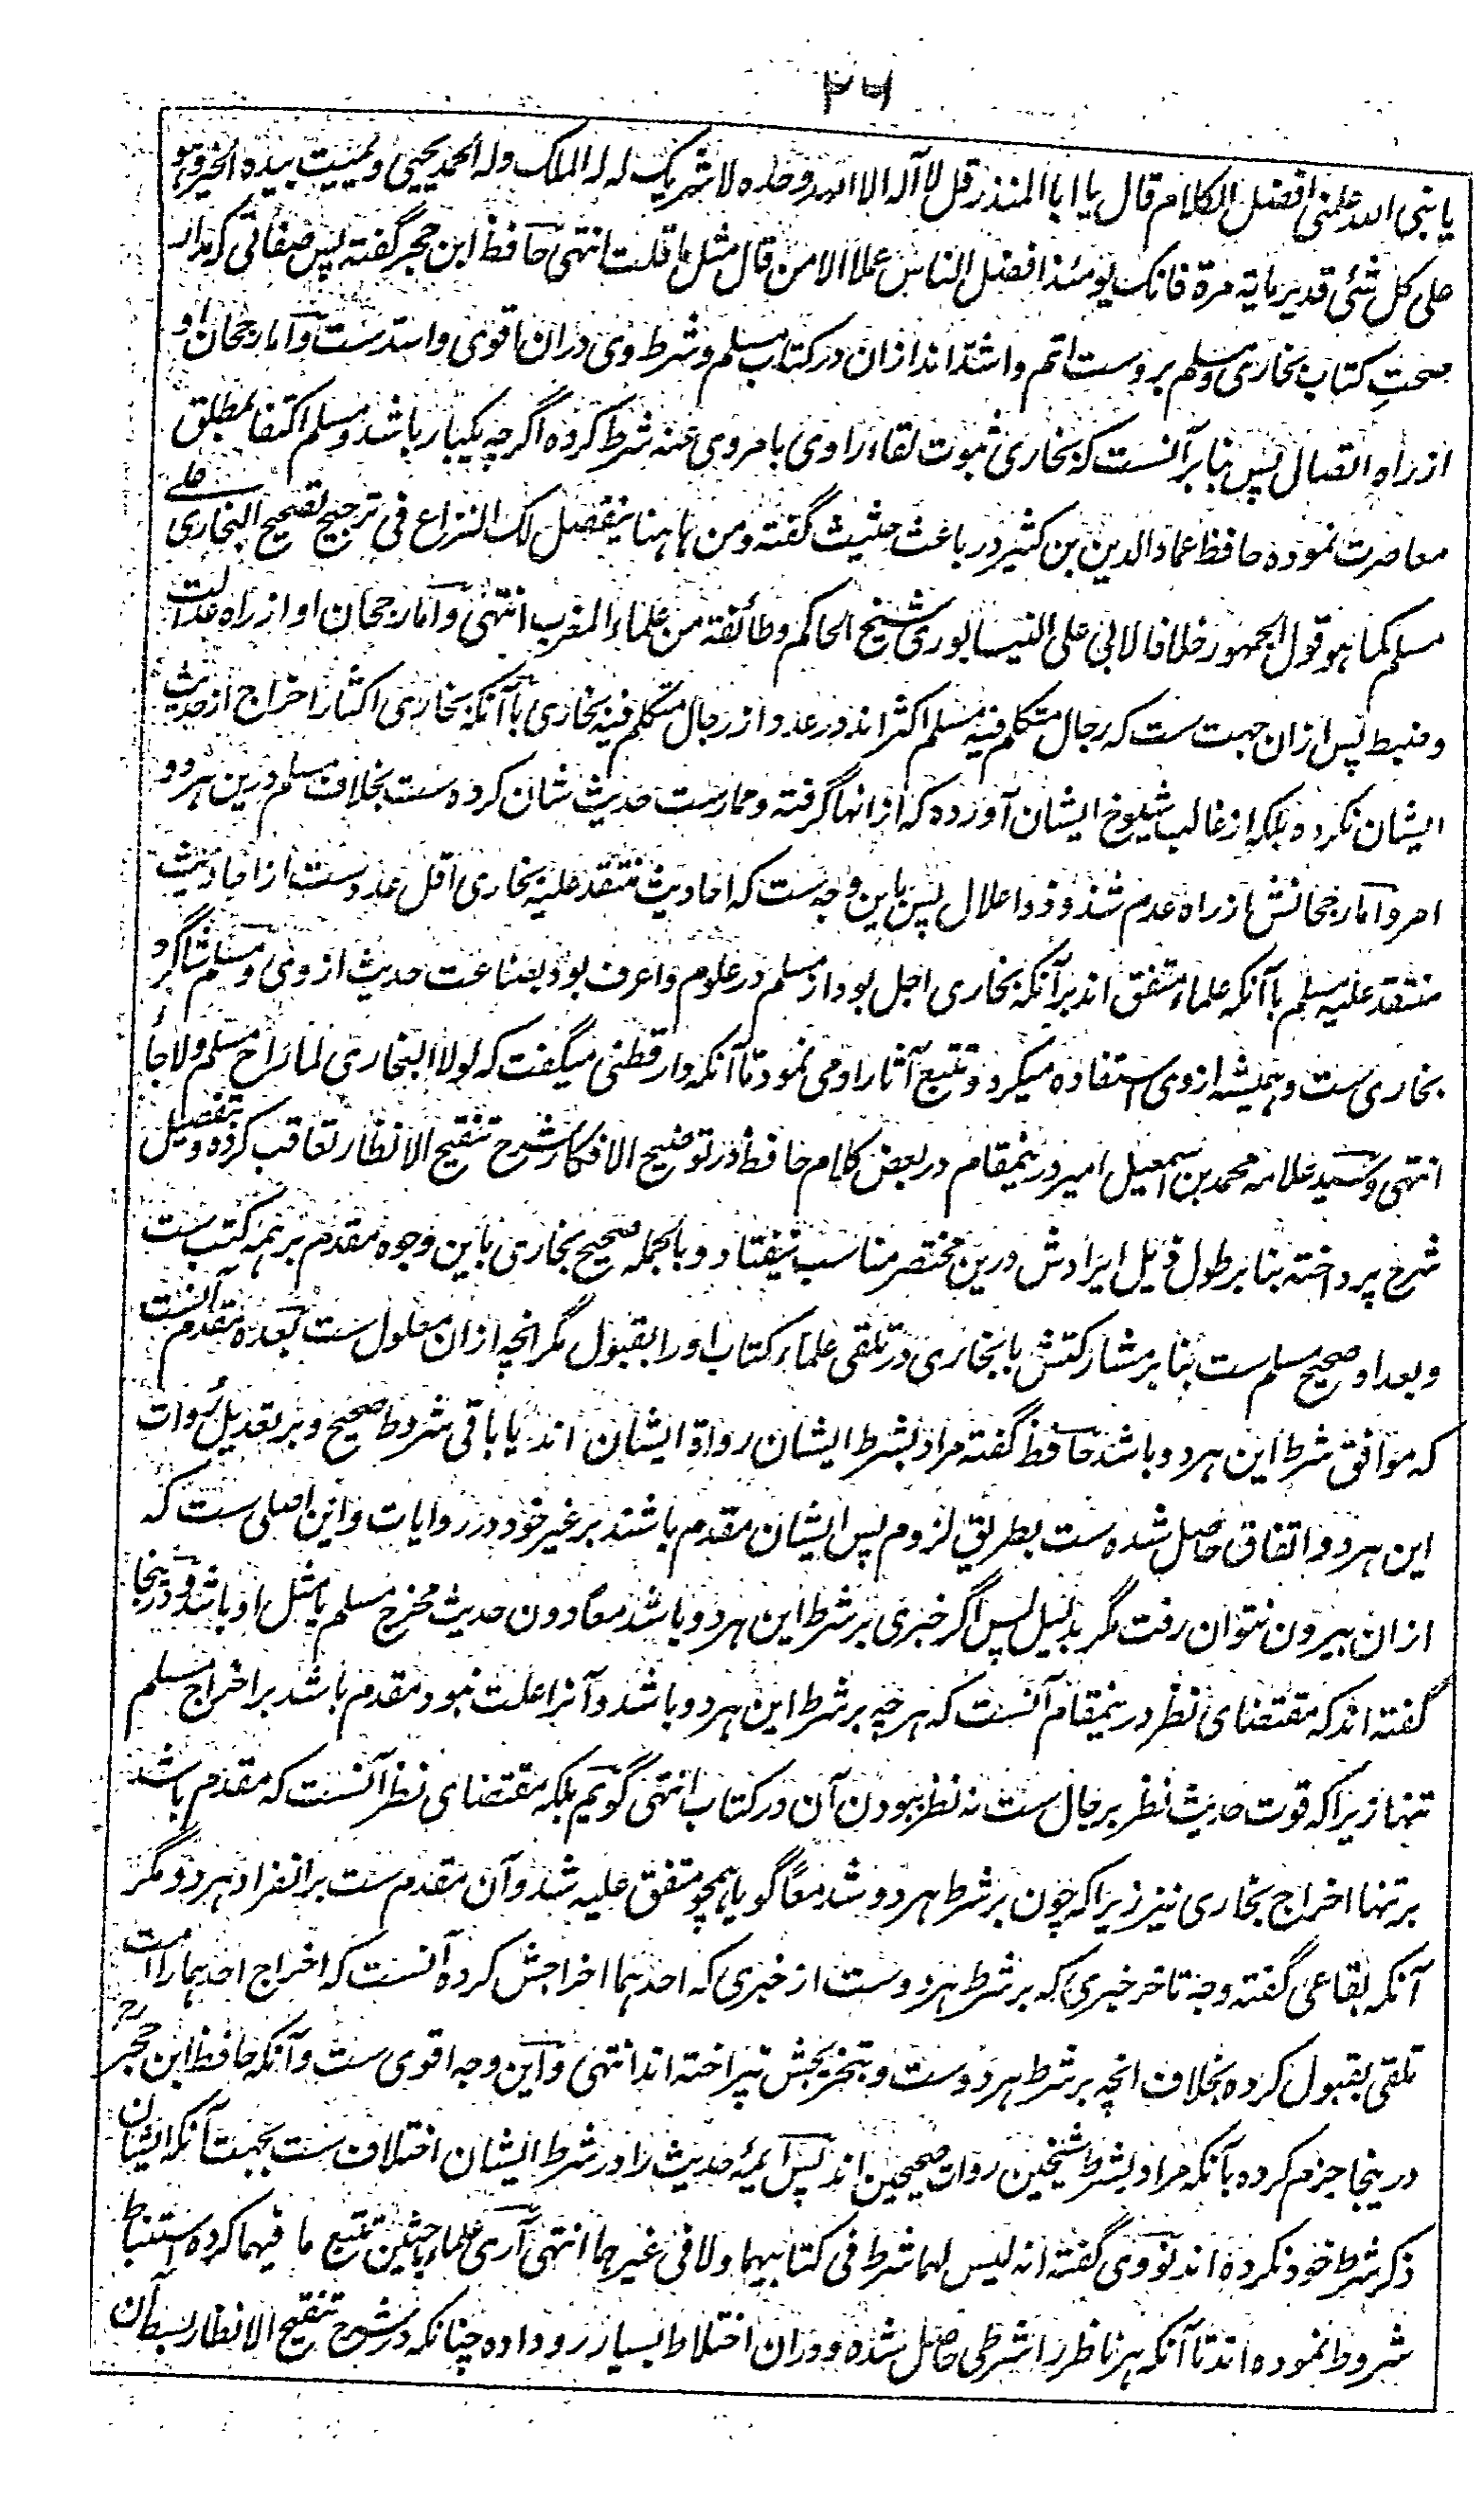 ۲۶
یا نبی الله علمنی افضل الکلام قال یا ابا المنذر قل لا آله الا الله وحده لا شریک له له الملک وله الحمد یحیی ویمیت بیده الخیر وهو
علی کل شئی قدیر مایة مرة فانک یومئذ افضل الناس عملا الا من قال مثل ما قلت انتهی حافظ ابن حجر گفته پس صفاتی که مدار
صحتِ کتاب بخاری ومسلم بروست اتم واشد اند ازان در کتاب مسلم وشرط وی دران اقوی واسدست واما رجحان او
از راه اتصال پس بنا بر آنست که بخاری ثبوت لقاء راوی با مروی عنه شرط کرده اگرچه یکبار باشد ومسلم اکتفا بمطلق
معاصرت نموده حافظ عماد الدین بن کثیر در باعث حثیث گفته ومن هاهنا ینفصل لک النزاع فی ترجیح تصحیح البخاری علی
مسلم کما هو قول الجمهور خلافا لابی علی النیسابوری شیخ الحاکم وطائفة من علماء المغرب انتهی واما رجحان او از راه عدالت
وضبط پس ازان جهت ست که رجال متکلم فیه مسلم اکثر اند در عدد از رجال متکلم فیه بخاری با آنکه بخاری اکثار اخراج از حدیث
ایشان نکرده بلکه از غالب شیوخ ایشان آورده که ازانها گرفته وممارست حدیث شان کرده ست بخلاف مسلم درین هر دو
امر واما رجحانش از راه عدم شذوذ واعلال پس باین وجه ست که احادیث منتقد علیه بخاری اقل عددست از احادیث
منتقد علیه مسلم با آنکه علماء متفق اند بر آنکه بخاری اجل بود از مسلم در علوم واعرف بود بصناعت حدیث از وی ومسلم شاگرد
بخاری ست وهمیشه از وی استفاده میکرد وتتبع آثار او می نمود تا آنکه دارقطنی میگفت که لولا البخاری لما راح مسلم ولا جاء
انتهی وسید علامه محمد بن اسمعیل امیر درینمقام در بعض کلام حافظ در توضیح الافکار شرح تنقیح الانظار تعاقب کرده وتفصیل
شرح پرداخته بنا بر طول ذیل ایرادش درین مختصر مناسب نیفتاد وبالجمله صحیح بخاری باین وجوه مقدم بر همه کتب ست
وبعد او صحیح مسلم ست بنا بر مشارکتش با بخاری در تلقی علماء کتاب او را بقبول مگر انچه ازان معلول ست بعده مقدم آنست
که موافق شرط این هر دو باشد حافظ گفته مراد بشرط ایشان رواة ایشان اند یا باقی شروط صحیح وبر تعدیل رُوات
این هر دو اتفاق حاصل شده ست بطریق لزوم پس ایشان مقدم باشند بر غیر خود در روایات واین اصلی ست که
ازان بیرون نتوان رفت مگر بدلیل پس اگر خبری بر شرط این هر دو باشد معا دون حدیث مخرج مسلم یا مثل او باشد ودرینجا
گفته اند که مقتضای نظر درینمقام آنست که هرچه بر شرط این هر دو باشد وآنرا علت نبود مقدم باشد بر اخراج مسلم
تنها زیرا که قوت حدیث نظر برجال ست نه نظر ببودن آن در کتاب انتهی گویم بلکه مقتضای نظر آنست که مقدم باشد
بر تنها اخراج بخاری نیز زیرا که چون بر شرط هر دو شد معاً گویا همچو متفق علیه شد وآن مقدم ست بر انفراد هر دو مگر
آنکه بقاعی گفته وجه تاخر خبری که بر شرط هر دوست از خبری که احدهما اخراجش کرده آنست که اخراج احدهما را امت
تلقی بقبول کرده بخلاف انچه بر شرط هر دوست وبتخریجش نپرداخته اند انتهی واین وجه اقوی ست وآنکه حافظ ابن حجر رح
درینجا جزم کرده بآنکه مراد بشرط شیخین روات صحیحین اند پس ایمهٔ حدیث را در شرط ایشان اختلاف ست بجهت آنکه ایشان
ذکر شرط خود نکرده اند نووی گفته انه لیس لهما شرط فی کتابیهما ولا فی غیرهما انتهی آری علماء باحثین تتبع ما فیهما کرده استنباط
شروط نموده اند تا آنکه هر ناظر را شرطی حاصل شده ودران اختلاط بسیار رو داده چنانکه در شرح تنقیح الانظار بسط آن